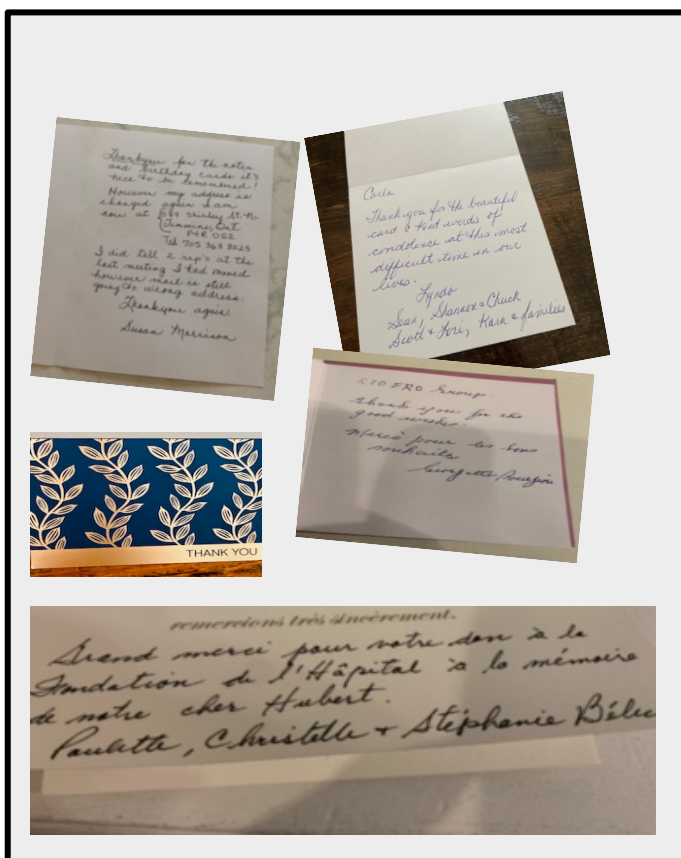 Thankyou for the notes
and birthday cards it's
nice to be remembered!
However my address is
changed again I am
now at Shirley St. N.
Timmins, Ont
P4R
Tel 705 363 3025
I did tell 2 rep's at the
last meeting I had moved
however mail is still
going to wrong address.
Thankyou again
Susan Morrison
Carla
Thank you for the beautiful
card & kind words of
condolence at this most
difficult time in our
lives.
Lynda
Sean, Shannon & Chuck
Scott & Lori, Kara & families
RTO ERO Group.
thank you for the
good wishes.
Merci pour les bons
souhaits
Georgette
THANK YOU
remercions très sincèrement.
Grand merci pour votre don à la
Fondation de l'Hâpital à la mémoire
de notre cher Hubert.
Paulette, Christelle + Stéphanie